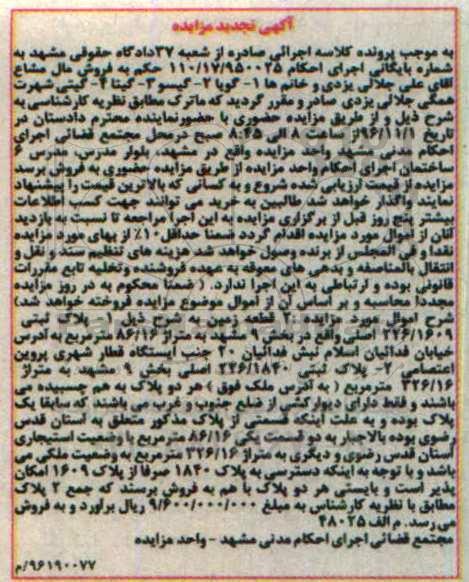 آگهی تجدید مزایده
به موجب پرونده کلاسه اجرائی صادره از شعبه ۳۷دادگاه حقوقی مشهد به
شماره بایگانی اجرای احکام ۱۱۰/۱۷/۹۵۰۰۲۵ حکم به فروش مال مشاع
آقای علی جلالی یزدی و خانم ها ۱- گویا ۲- گیسو ۳- گیتا ۴- گیتی شهرت
همگی جلالی یزدی صادر و مقرر گردید که ماترک مطابق نظریه کارشناسی به
شرح ذیل و از طریق مزایده حضوری با حضورنماینده محترم دادستان در
تاریخ ۹۶/۱۱/۱از ساعت ۸ الی ۸:۴۵ صبح درمحل مجتمع قضائی اجرای
احکام مدنی مشهد واحد مزایده واقع در مشهد، بلوار مدرس، مدرس ۶
ساختمان اجرای احکام واحد مزایده از طریق مزایده حضوری به فروش برسد
مزایده از قیمت ارزیابی شده شروع و به کسانی که بالاترین قیمت را پیشنهاد
نمایند واگذار خواهد شد طالبین به خرید می توانند جهت کسب اطلاعات
بیشتر پنج روز قبل از برگزاری مزایده به این اجرا مراجعه تا نسبت به بازدید
آنان از اموال مورد مزایده اقدام گردد ضمنا حداقل ۱۰٪ از بهای مورد مزایده
نقدا و فی المجلس از برنده وصول خواهد شد هزینه های تنظیم سند و نقل و
انتقال بالمناصفه و بدهی های معوقه به عهده فروشنده وتخلیه تابع مقررات
قانونی بوده و ارتباطی به این اجرا ندارد. ( ضمنا محکوم به در روز مزایده
مجددا محاسبه و بر اساس آن از اموال موضوع مزایده فروخته خواهد شد)
شرح اموال مورد مزایده :۲ قطعه زمین به شرح ذیل ۱- پلاک ثبتی
۲۲۶/۱۶۰۹ اصلی واقع در بخش ۹ مشهد به متراژ ۸۶/۱۶ مترمربع به آدرس
خیابان فدائیان اسلام نبش فدائیان ۲۰ جنب ایستگاه قطار شهری پروین
اعتصامی ۲- پلاک ثبتی ۲۲۶/۱۸۴۰ اصلی بخش ۹ مشهد به متراژ
۳۲۶/۱۶ مترمربع ( به آدرس ملک فوق ) هر دو پلاک به هم چسبیده می
باشند و فقط دارای دیوارکشی از ضلع جنوب و غرب می باشند که سابقا یک
پلاک بوده و به علت اینکه قسمتی از پلاک مذکور متعلق به آستان قدس
رضوی بوده بالاجبار به دو قسمت یکی ۸۶/۱۶ مترمربع با وضعیت استیجاری
آستان قدس رضوی و دیگری به متراژ ۳۲۶/۱۶ مترمربع به وضعیت ملکی می
باشد و با توجه به اینکه دسترسی به پلاک ۱۸۴۰ صرفا از پلاک ۱۶۰۹ امکان
پذیر است و بایستی هر دو پلاک با هم به فروش برسند که جمع ۲ پلاک
مطابق با نظریه کارشناس به مبلغ ۹/۶۰۰/۰۰۰/۰۰۰ ریال برآورد و به فروش
می رسد. م الف ۴۸۰۲۵
مجتمع قضائی اجرای احکام مدنی مشهد - واحد مزایده
۹۶۱۹۰۰۷۷/م